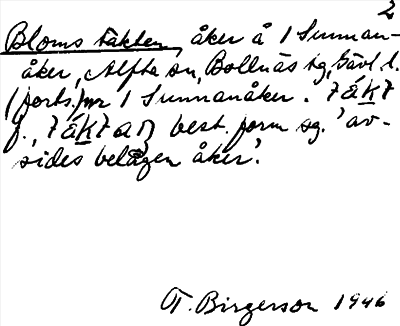 2
Blomstäkten, åker å 1 Sunnan-
åker, Alfta sn, Bollnäs tg, Gävl. l.
(forts. fr 1 Sunnanåker.
f., best. form sg. 'av-
sides belägen åker'.
T. Birgerson 1946